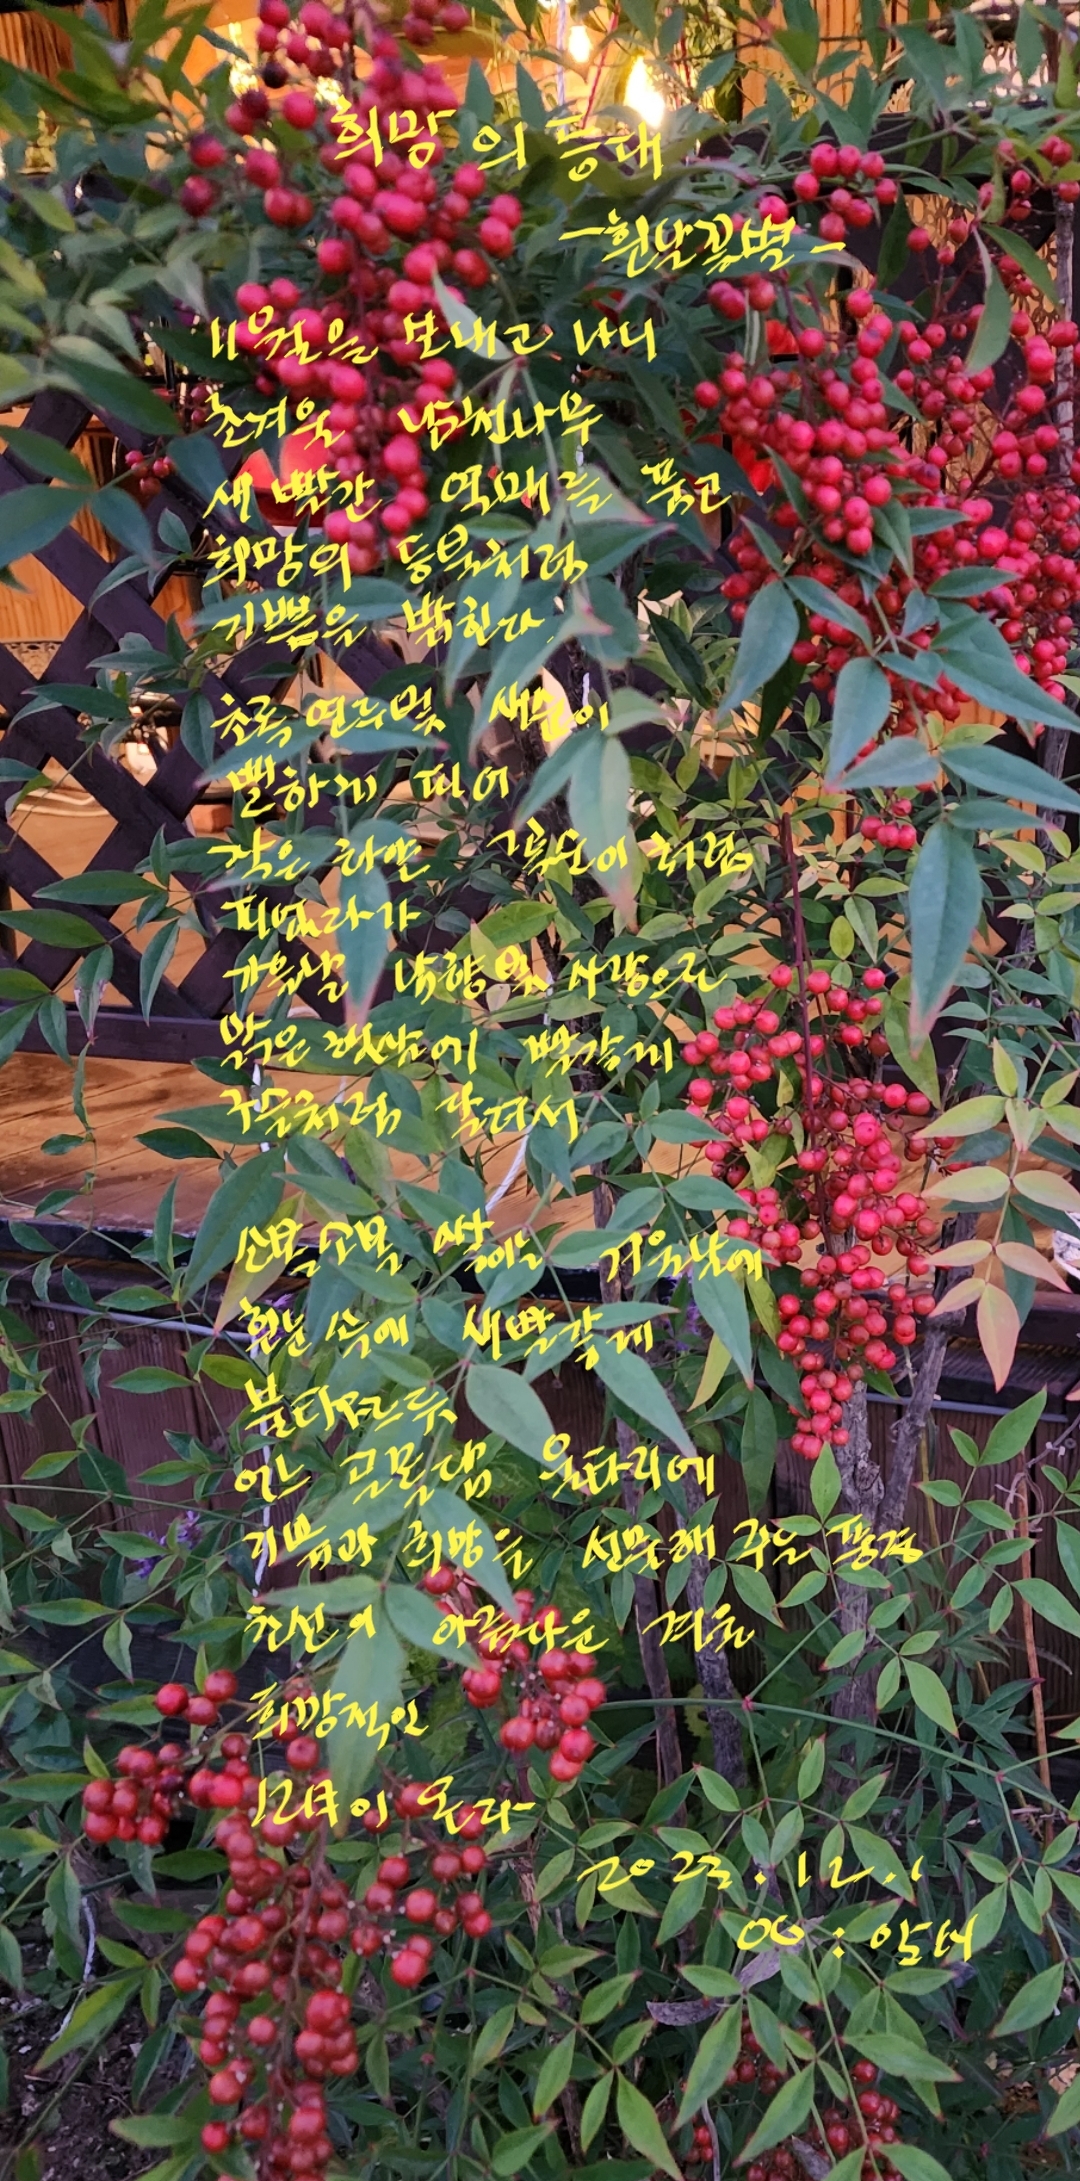 희망의 등대
-흰날꽃별-
11월을 보내고 나니
초겨울 남천나무
새빨간 열매를 품고
희망의 등불처럼
기쁨을 밝힌다.
초록 연두빛 새순이
별하게 피어
작은 하얀 처럼
피었다가
가을날 사랑으로
맑은 햇살에 빨갛게
구슬처럼 달려서
소복소복 쌓이는 겨울날에
흰눈 속에 새빨갛게
불타올라
어느 골목 담 울타리에
기쁨과 희망을 선물해 주는 풍경
천선의 아름다운 겨울
희망적인
12월이 온다
2023.12.1
06: